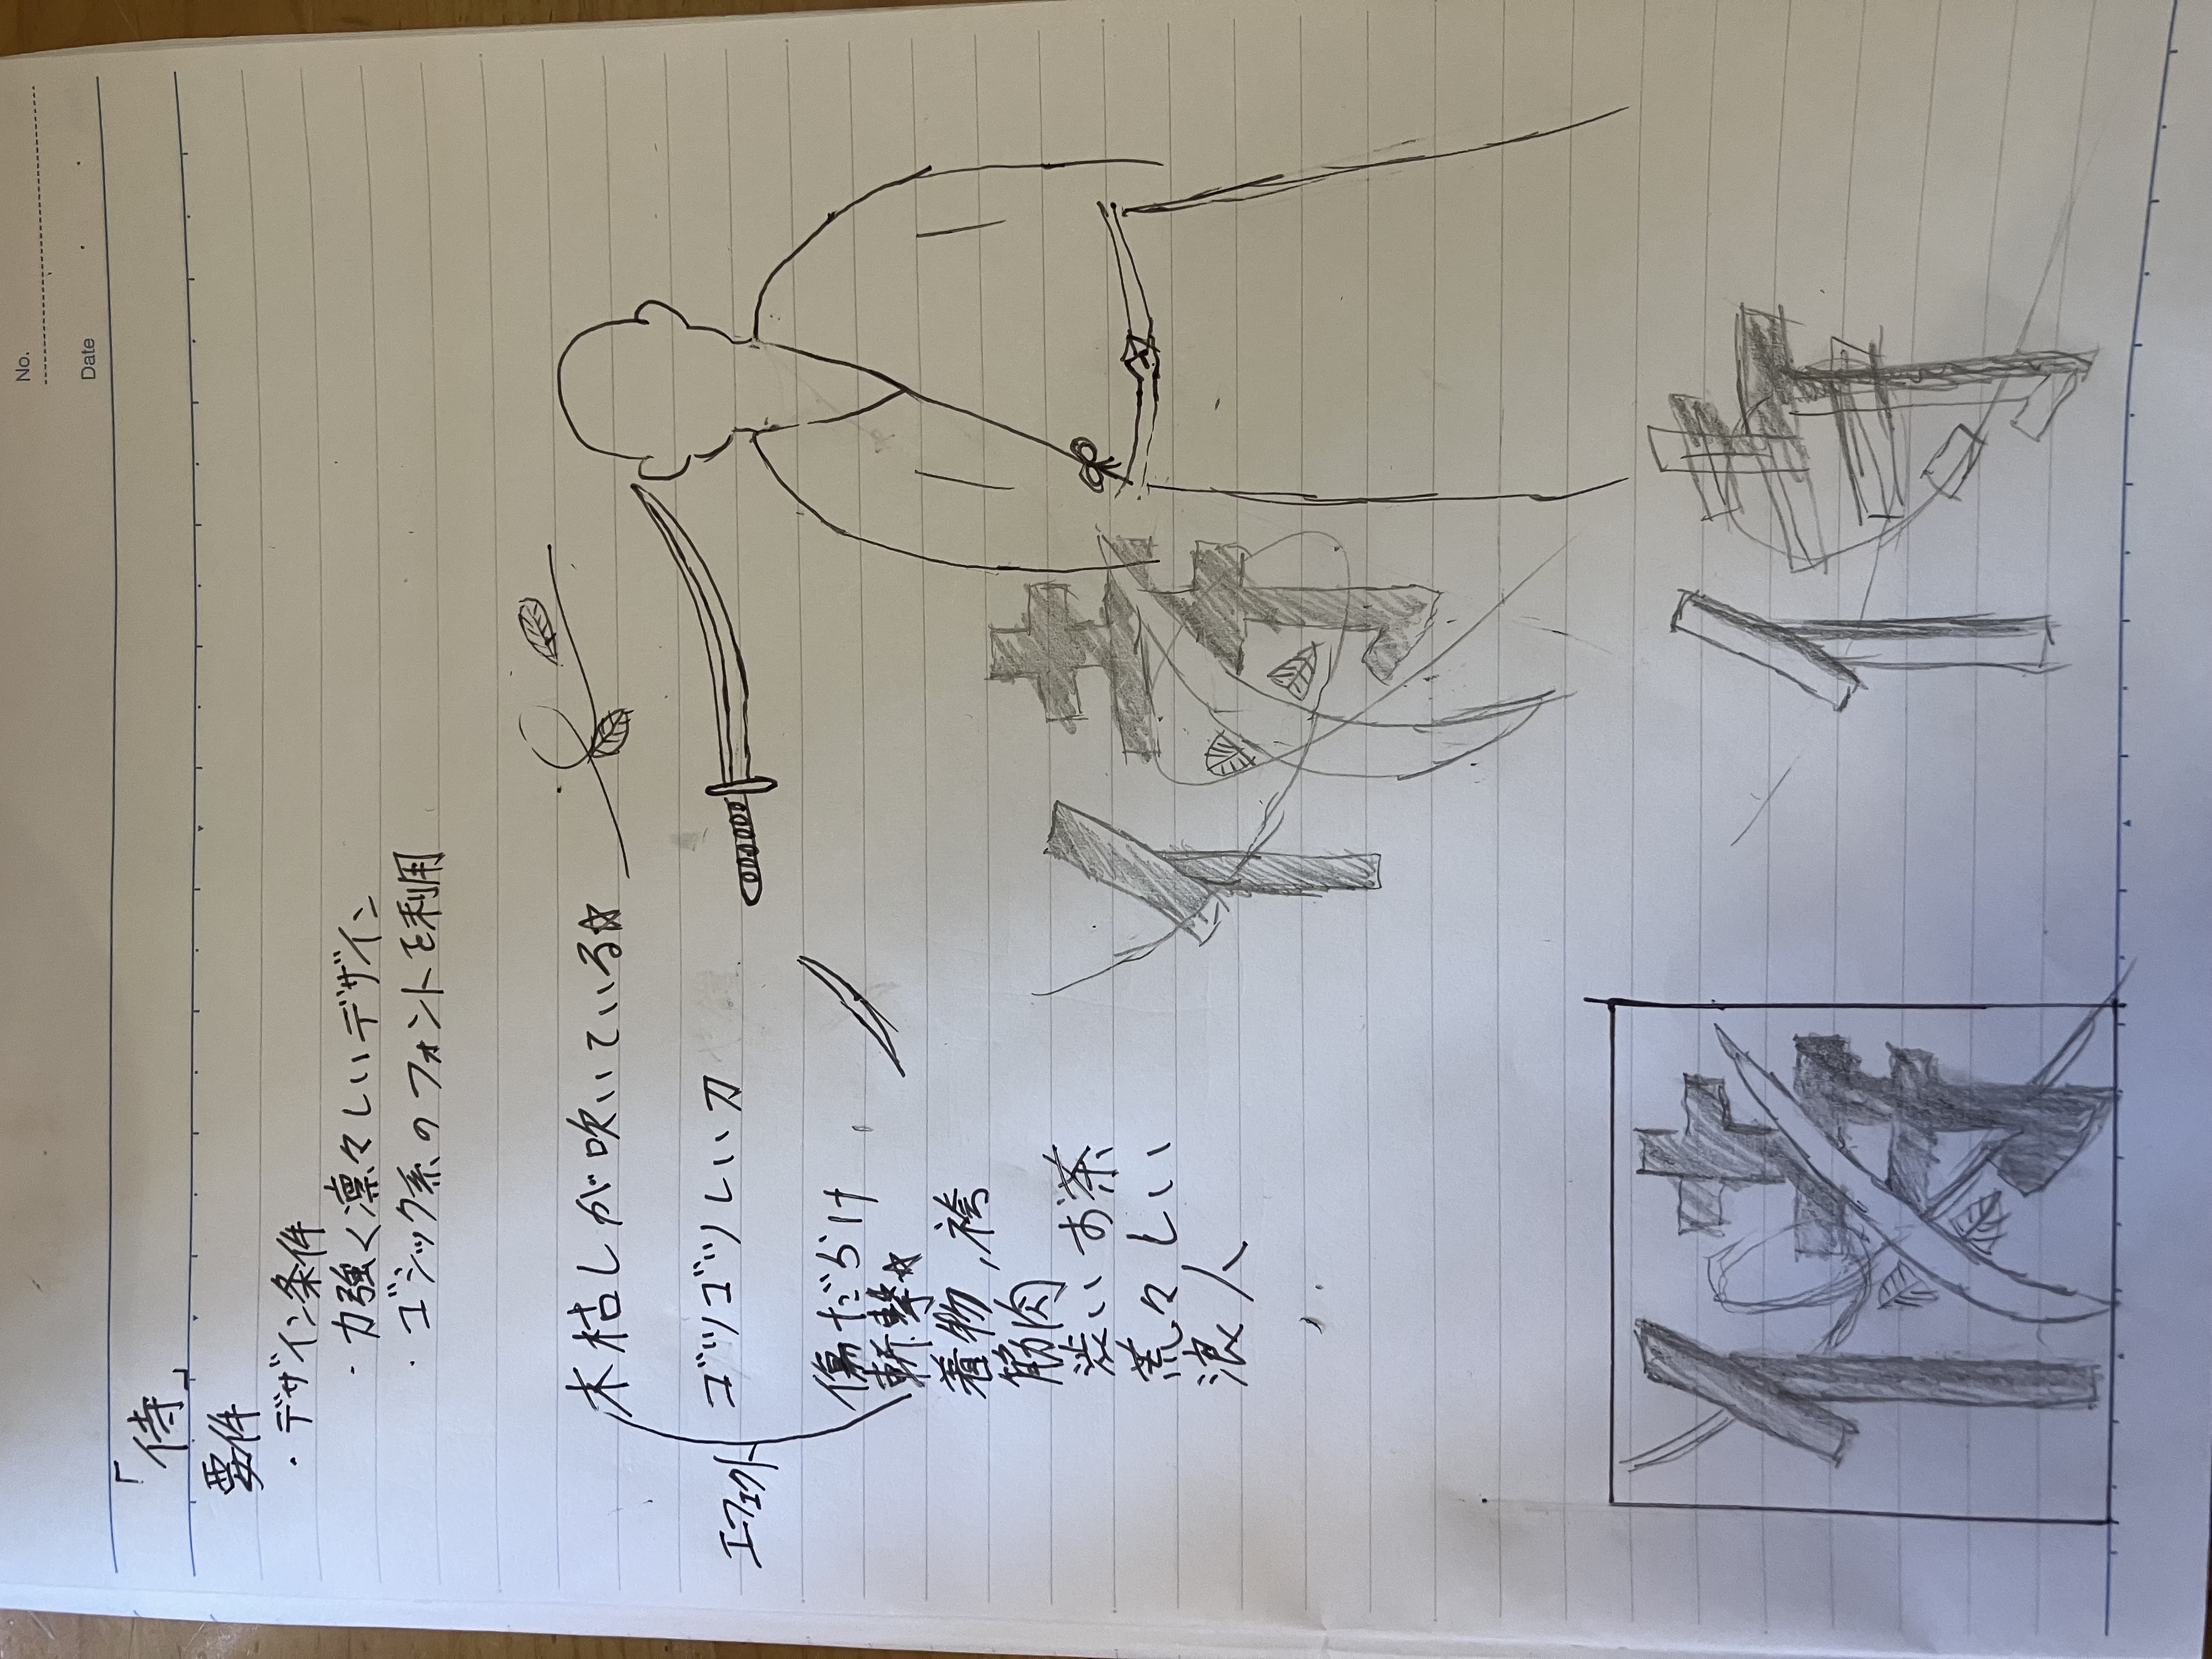 No.
Date
「侍」
要件
・デザイン条件
・力強く凛々しいデザイン
・ゴシック系のフォントを利用
木枯しが吹いている☆
エフェクト
ゴツゴツしい刀
傷だらけ
斬撃☆
着物,袴
筋肉
渋いお茶
荒々しい
浪人
侍
侍
侍